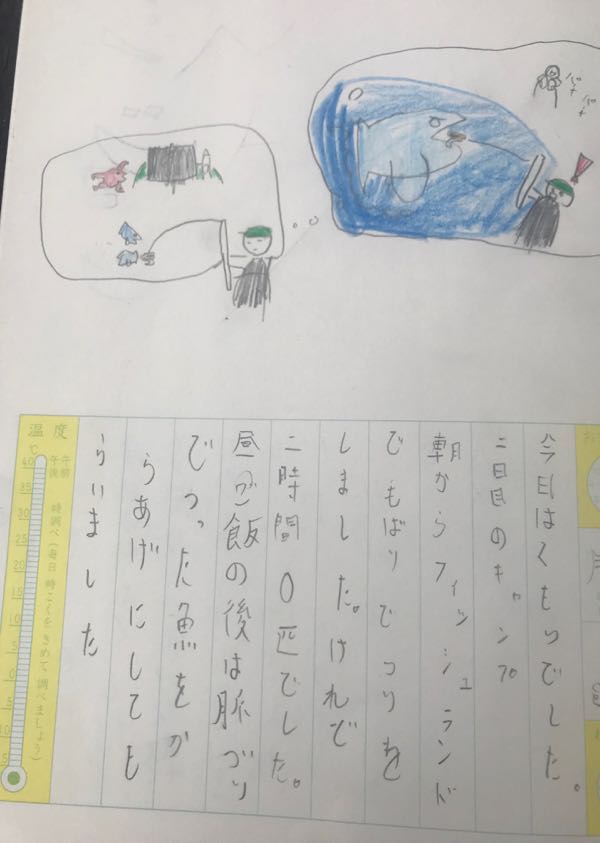 今日はくもりでした。
二日目のキャンプ
朝からフィッシュランド
でもばりでつりを
しました。けれど
二時間0匹でした。
昼ご飯の後は脈づり
でつった魚をか
らあげにしても
らいました
バチ
バチ
温度
℃
午前
午後
時調べ(毎日 時こくをきめて調べましょう)
40
35
30
25
20
15
10
5
0
5
10
15